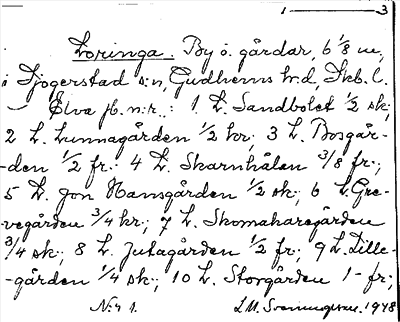 1 — 3
Loringa. By o. gårdar, 6 1/8 m,
i Sjogerstad s:n, Gudhems h:d, Skb. l.
— Elva jb. n:r.: 1 L. Sandbolet 1/2 sk;
2 L. Lunnagården 1/2 kr; 3 L. Bosgår-
-den 1/2 fr; 4 L. Skarnhålan 3/8 fr;
5 L. Jon Hansgården 1/2 sk; 6 L. Gre-
vegården 3/4 kr; 7 L. Skomakaregården
3/4 sk; 8 L. Jutagården 1/2 fr; 9 L. Lille-
-gården 1/4 sk; 10 L. Storgården 1 fr;
N:r 1. L.M. Svenungsson. 1948